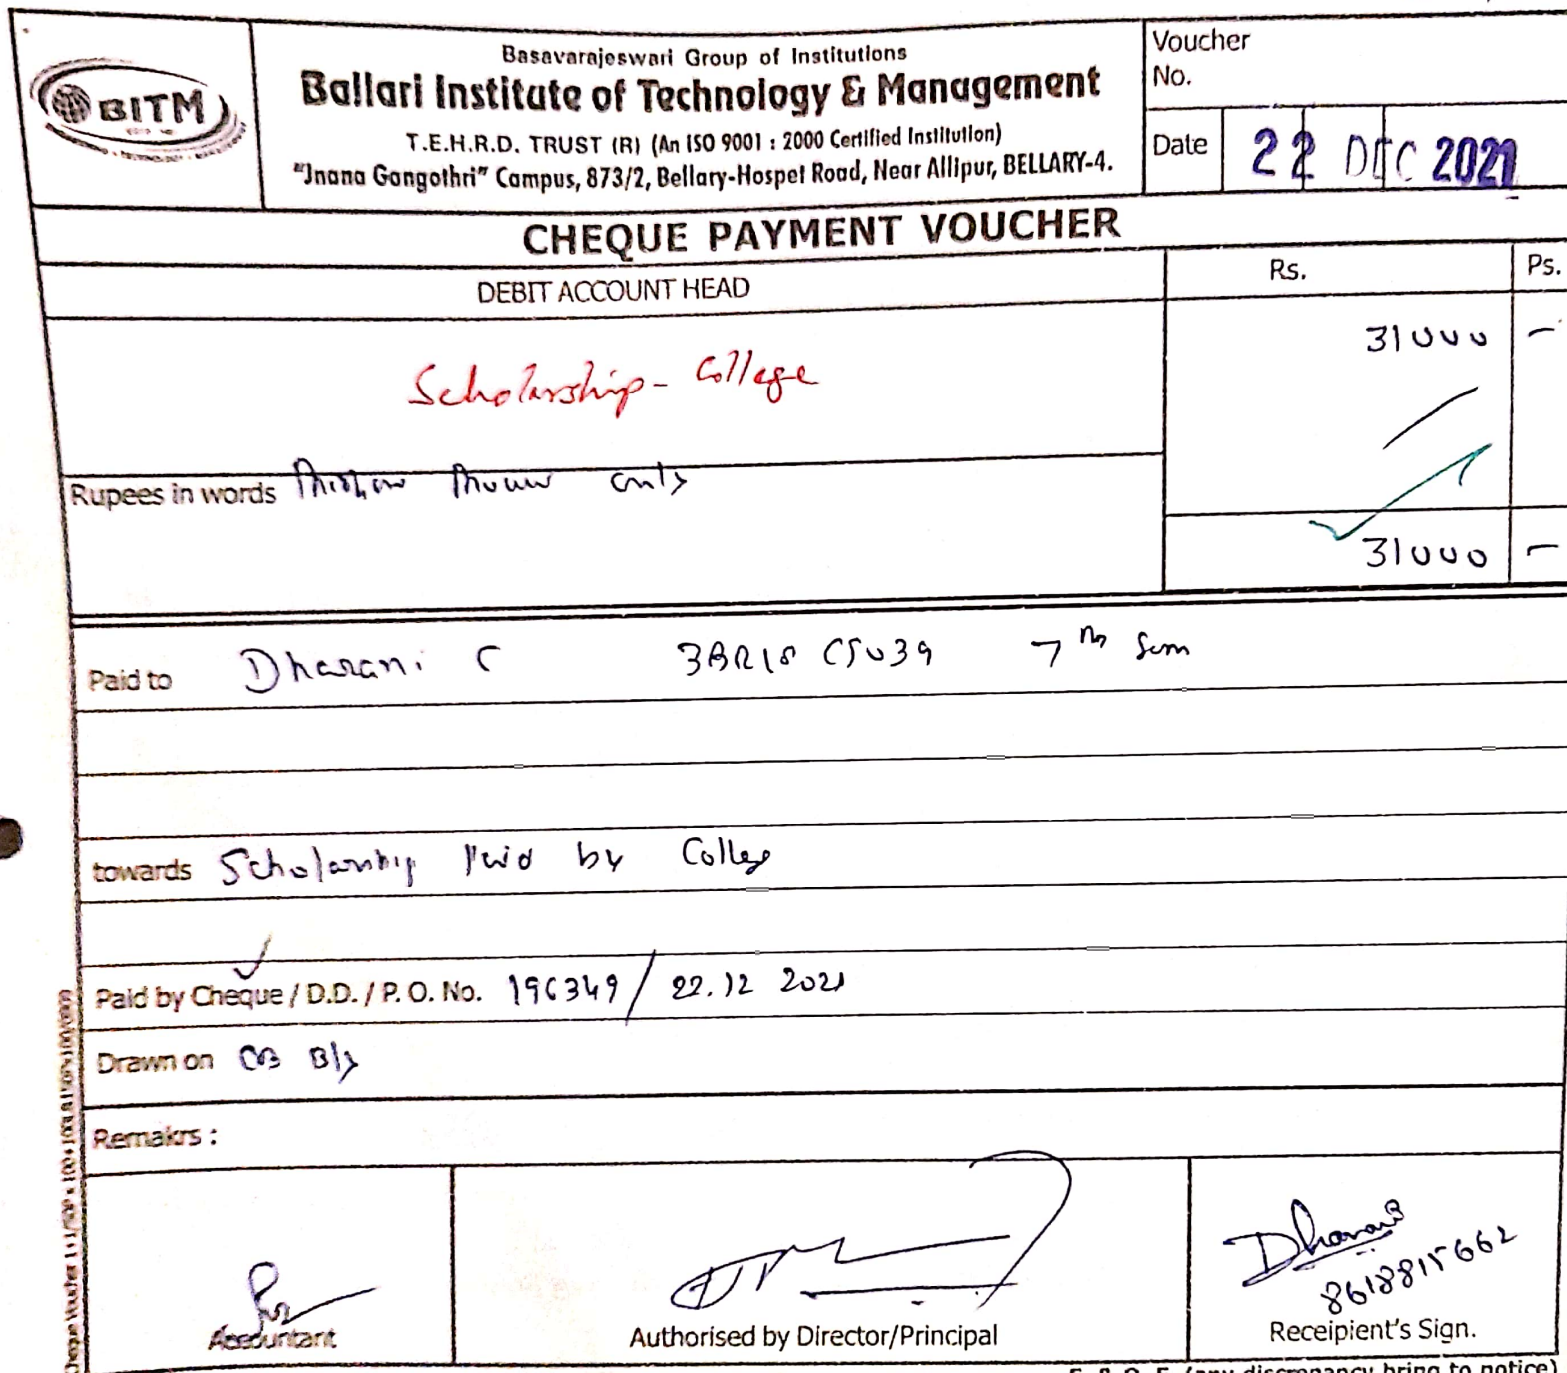 Basavarajeswari Group of Institutions
BITM
Ballari Institute of Technology & Management
T.E.H.R.D. TRUST (R) (An ISO 9001 : 2000 Certified Institution)
"Jnana Gangothri" Campus, 873/2, Bellary-Hospet Road, Near Allipur, BELLARY-4.
Voucher
No.
Date 22 DEC 2021
CHEQUE PAYMENT VOUCHER
DEBIT ACCOUNT HEAD Rs. Ps.
31000 –
Scholarship - College
Rupees in words only
31000 –
Paid to Dharani C 3BR18CS039 7th Sem
towards Scholarship Paid by College
Paid by Cheque / D.D. / P. O. No. 196349 / 22.12 2021
Drawn on CB Bly
Remakrs :
Dharani
8618815662
Accountant Authorised by Director/Principal Receipient's Sign.
E. & O. E. (any discrepancy bring to notice)